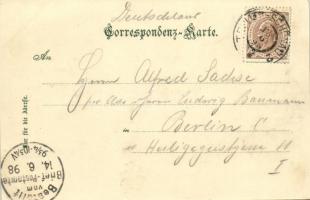 Deutschland
Correspondenz-Karte.
An
Herrn Alfred Sachse
Herrn Ludwig Baumann
Berlin C
Heiligegeiststrasse 11
I
Nur für die Adresse.
Bestellt
vom
Brief-Postamte
14. 6. 98